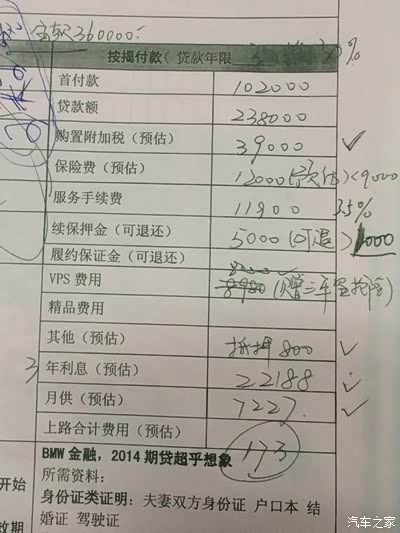 360000.
按揭付款（ 贷款年限 3 30%
首付款 102000
贷款额 238000
购置附加税（预估） 39000 ✓
保险费（预估） 12000(预估)<9000
服务手续费 11900 3.5%
续保押金（可退还） 5000(可退) 1000
履约保证金（可退还）
VPS 费用 8980 (赠三年盗抢)
精品费用
其他（预估） 抵押 800 ✓
3 年利息（预估） 22188 ✓
月供（预估） 7227. ✓
上路合计费用（预估） 173
BMW 金融，2014 期贷超乎想象
所需资料：
开始 身份证类证明：夫妻双方身份证 户口本 结
效期 婚证 驾驶证
汽车之家